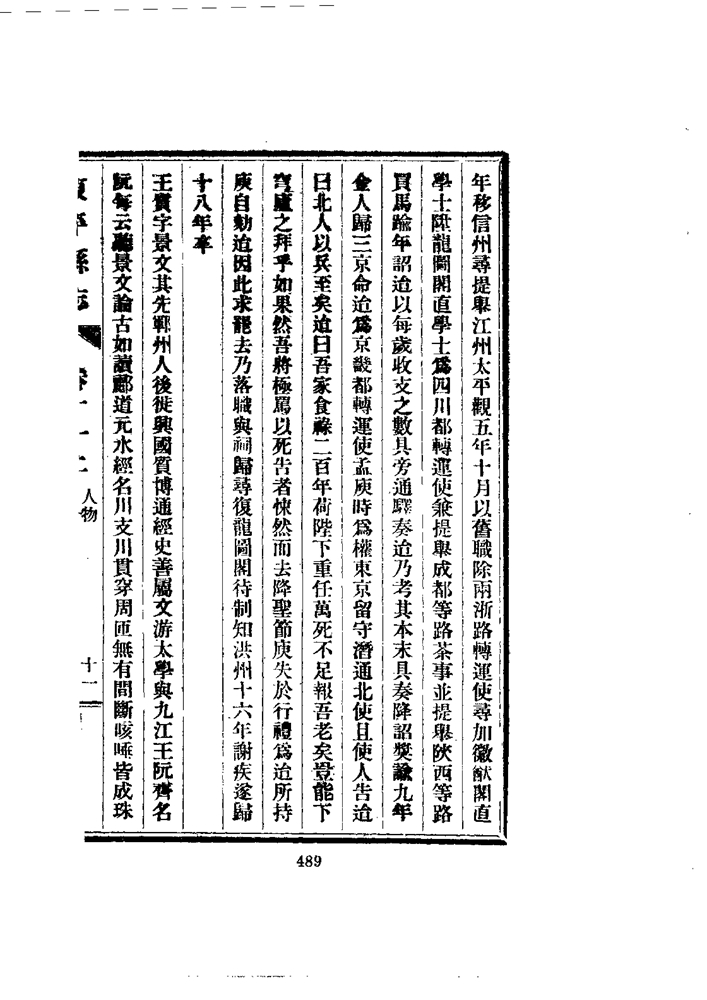 年移信州尋提舉江州太平觀五年十月以舊職除兩浙路轉運使尋加徽猷閣直
學士陞龍圖閣直學士爲四川都轉運使兼提舉成都等路茶事並提舉陝西等路
買馬踰年詔迨以每歲收支之數具旁通驛奏迨乃考其本末具奏降詔獎諭九年
金人歸三京命迨爲京畿都轉運使孟庾時爲權東京留守潛通北使且使人告迨
曰北人以兵至矣迨曰吾家食祿二百年荷陛下重任萬死不足報吾老矣豈能下
穹廬之拜乎如果然吾將極罵以死告者悚然而去降聖節庾失於行禮爲迨所持
庾自劾迨因此求罷去乃落職與祠歸尋復龍圖閣待制知洪州十六年謝疾遂歸
十八年卒
王質字景文其先鄆州人後徙興國質博通經史善屬文游太學與九江王阮齊名
阮每云聽景文論古如讀酈道元水經名川支川貫穿周匝無有間斷咳唾皆成珠
東平縣志 卷十一上 人物 十一
489